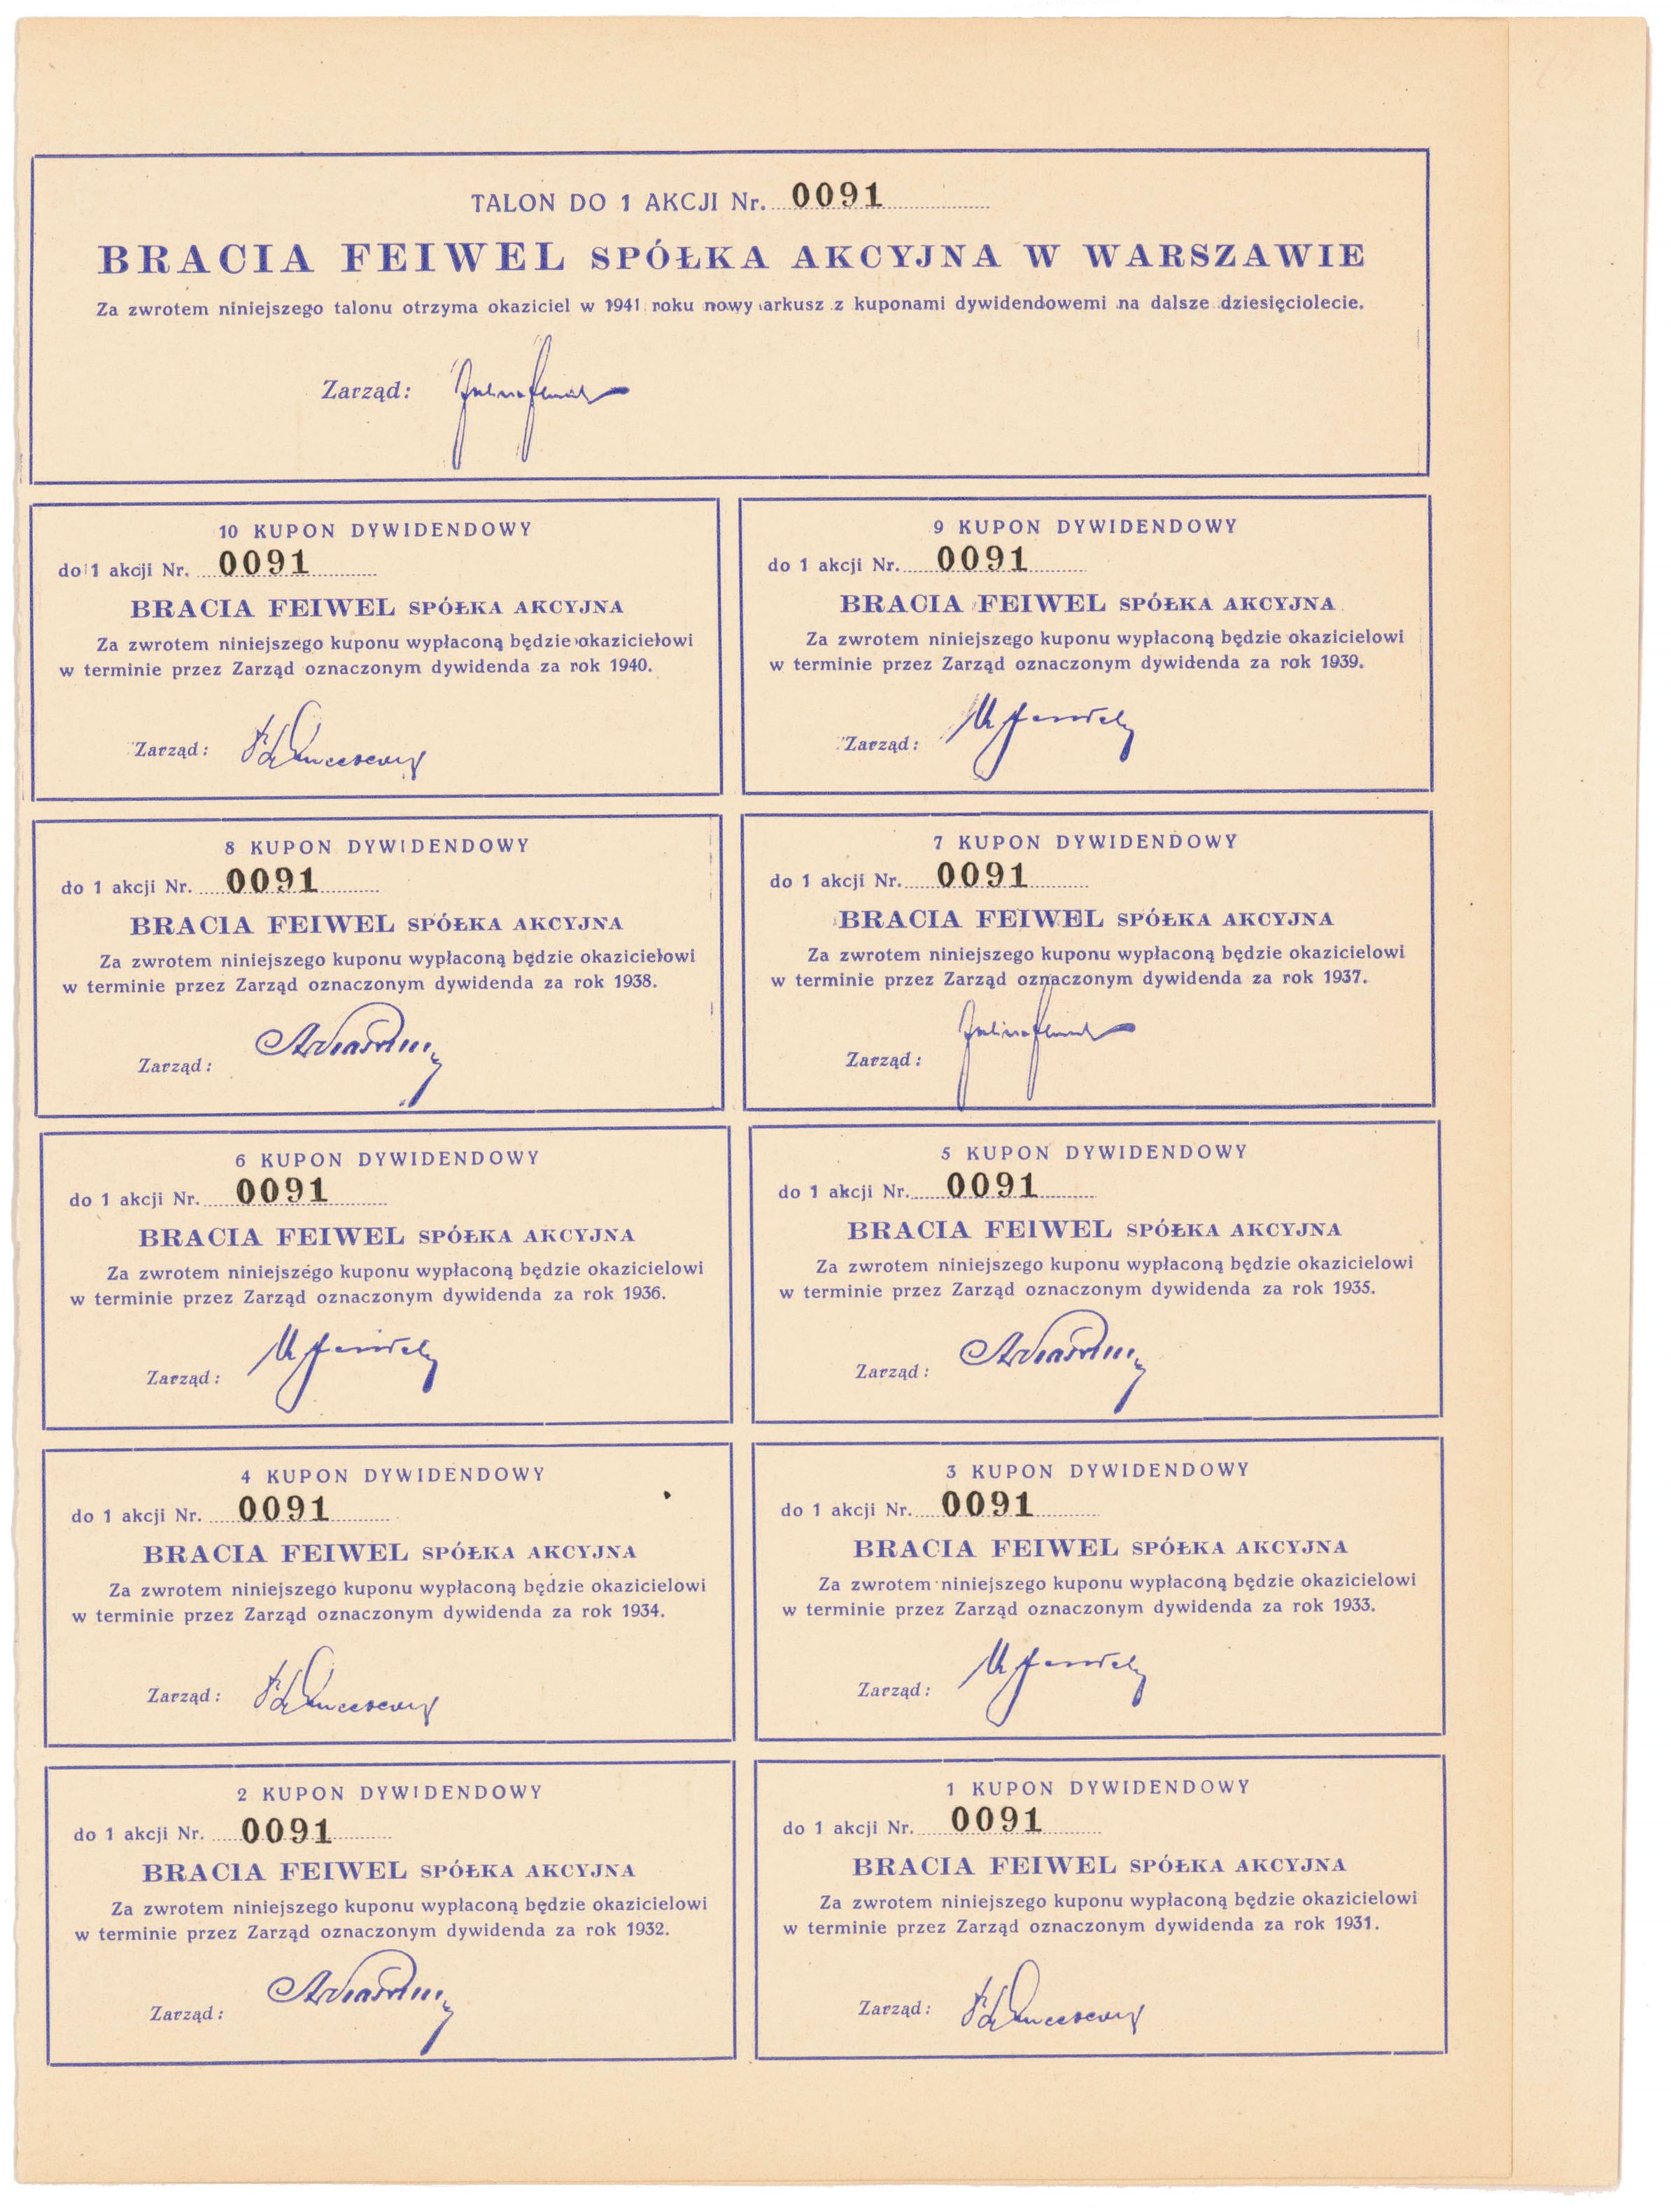 TALON DO 1 AKCJI Nr. 0091
BRACIA FEIWEL SPÓŁKA AKCYJNA W WARSZAWIE
Za zwrotem niniejszego talonu otrzyma okaziciel w 1941 roku nowy arkusz z kuponami dywidendowemi na dalsze dziesięciolecie.
Zarząd:
10 KUPON DYWIDENDOWY
do 1 akcji Nr. 0091
BRACIA FEIWEL SPÓŁKA AKCYJNA
Za zwrotem niniejszego kuponu wypłaconą będzie okazicielowi
w terminie przez Zarząd oznaczonym dywidenda za rok 1940.
Zarząd:
9 KUPON DYWIDENDOWY
do 1 akcji Nr. 0091
BRACIA FEIWEL SPÓŁKA AKCYJNA
Za zwrotem niniejszego kuponu wypłaconą będzie okazicielowi
w terminie przez Zarząd oznaczonym dywidenda za rok 1939.
Zarząd:
8 KUPON DYWIDENDOWY
do 1 akcji Nr. 0091
BRACIA FEIWEL SPÓŁKA AKCYJNA
Za zwrotem niniejszego kuponu wypłaconą będzie okazicielowi
w terminie przez Zarząd oznaczonym dywidenda za rok 1938.
Zarząd:
7 KUPON DYWIDENDOWY
do 1 akcji Nr. 0091
BRACIA FEIWEL SPÓŁKA AKCYJNA
Za zwrotem niniejszego kuponu wypłaconą będzie okazicielowi
w terminie przez Zarząd oznaczonym dywidenda za rok 1937.
Zarząd:
6 KUPON DYWIDENDOWY
do 1 akcji Nr. 0091
BRACIA FEIWEL SPÓŁKA AKCYJNA
Za zwrotem niniejszego kuponu wypłaconą będzie okazicielowi
w terminie przez Zarząd oznaczonym dywidenda za rok 1936.
Zarząd:
5 KUPON DYWIDENDOWY
do 1 akcji Nr. 0091
BRACIA FEIWEL SPÓŁKA AKCYJNA
Za zwrotem niniejszego kuponu wypłaconą będzie okazicielowi
w terminie przez Zarząd oznaczonym dywidenda za rok 1935.
Zarząd:
4 KUPON DYWIDENDOWY
do 1 akcji Nr. 0091
BRACIA FEIWEL SPÓŁKA AKCYJNA
Za zwrotem niniejszego kuponu wypłaconą będzie okazicielowi
w terminie przez Zarząd oznaczonym dywidenda za rok 1934.
Zarząd:
3 KUPON DYWIDENDOWY
do 1 akcji Nr. 0091
BRACIA FEIWEL SPÓŁKA AKCYJNA
Za zwrotem niniejszego kuponu wypłaconą będzie okazicielowi
w terminie przez Zarząd oznaczonym dywidenda za rok 1933.
Zarząd:
2 KUPON DYWIDENDOWY
do 1 akcji Nr. 0091
BRACIA FEIWEL SPÓŁKA AKCYJNA
Za zwrotem niniejszego kuponu wypłaconą będzie okazicielowi
w terminie przez Zarząd oznaczonym dywidenda za rok 1932.
Zarząd:
1 KUPON DYWIDENDOWY
do 1 akcji Nr. 0091
BRACIA FEIWEL SPÓŁKA AKCYJNA
Za zwrotem niniejszego kuponu wypłaconą będzie okazicielowi
w terminie przez Zarząd oznaczonym dywidenda za rok 1931.
Zarząd: